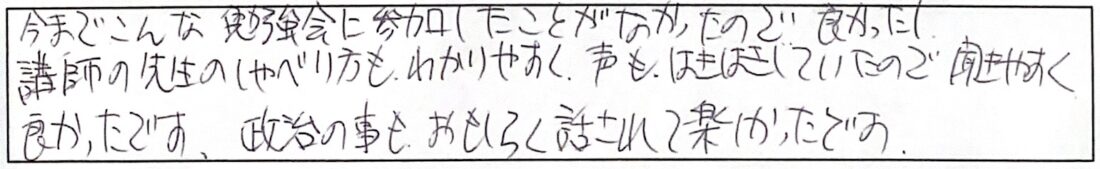 今までこんな勉強会に参加したことがなかったので良かったし
講師の先生のしゃべり方も、わかりやすく、声も、はきはきしていたので聞きやすく
良かったです、政治の事も、おもしろく話されて楽しかったです。